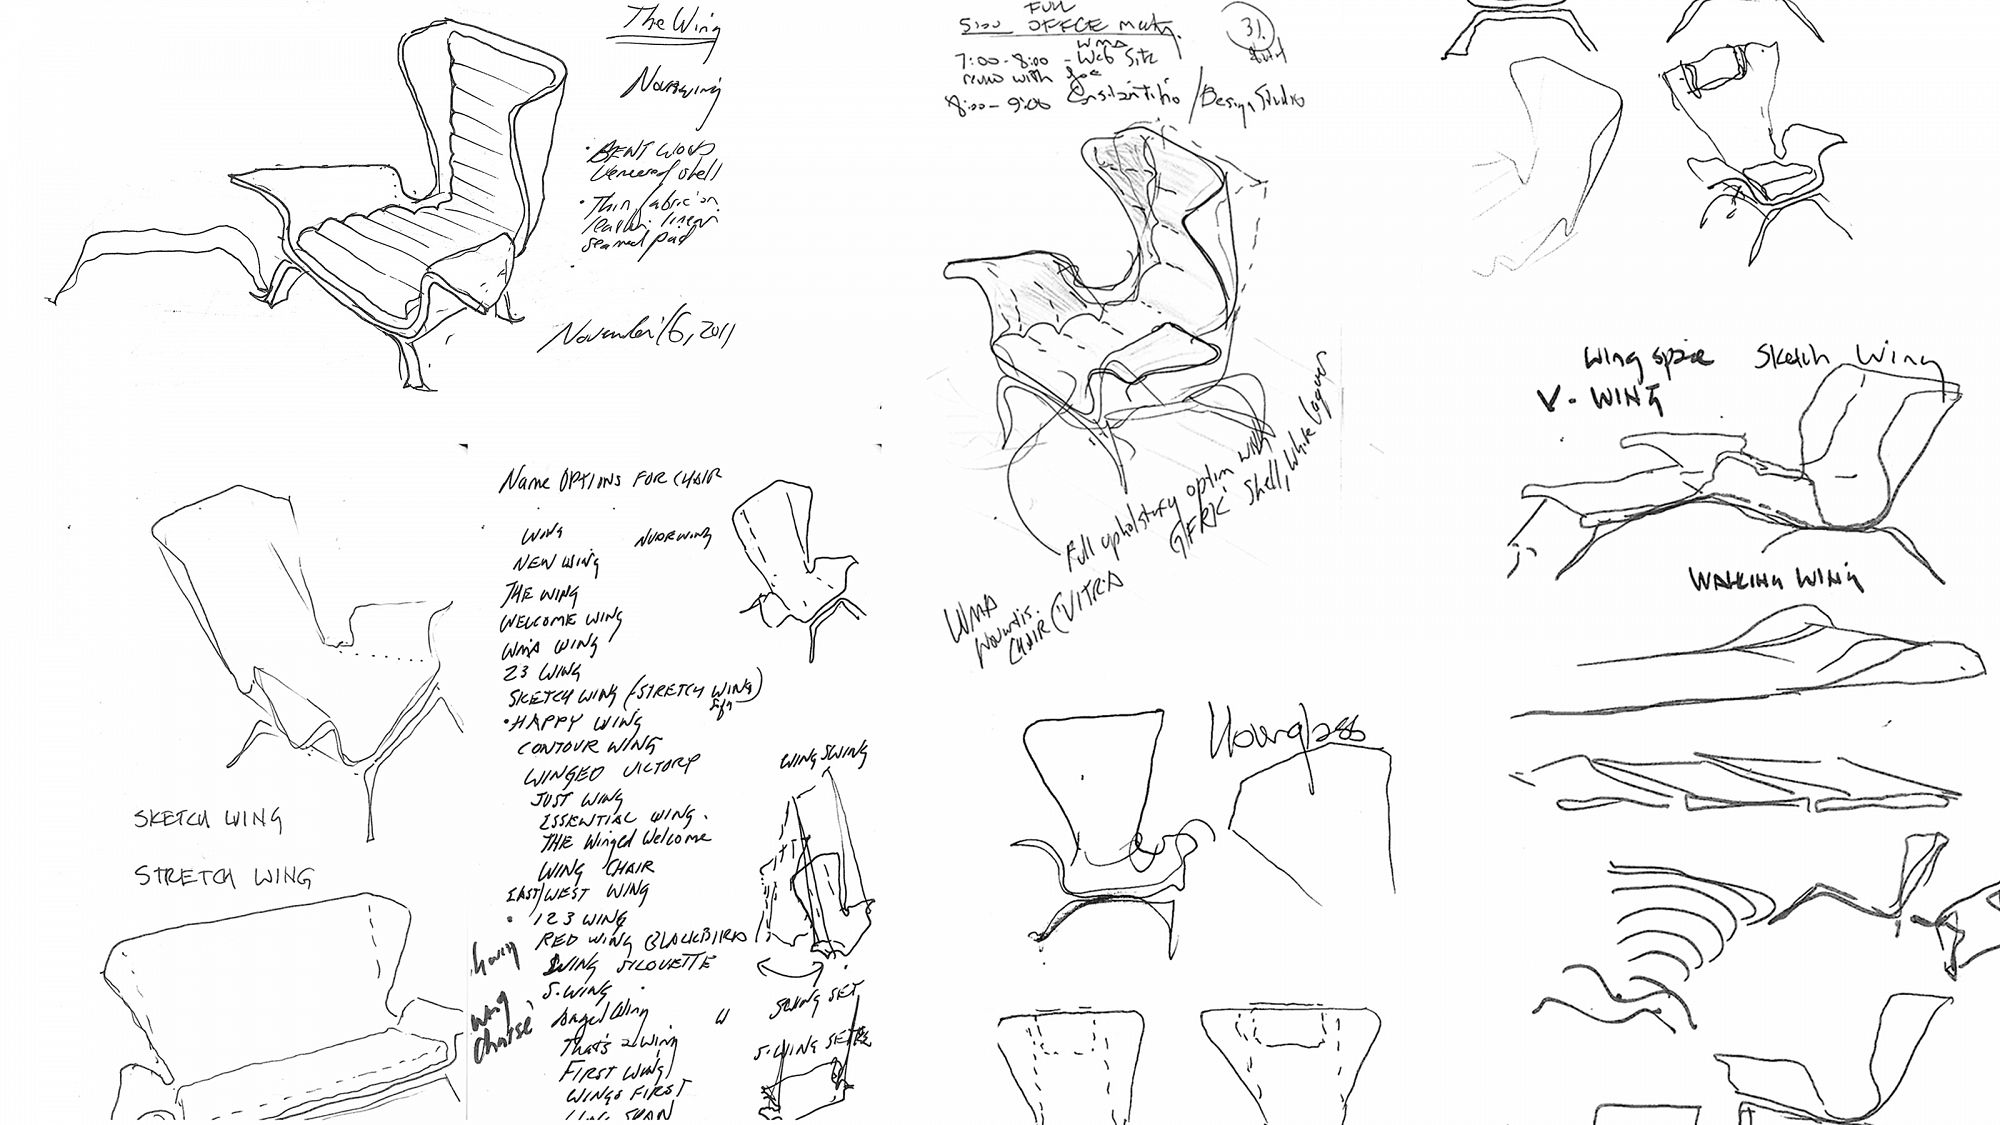 The Wing
Nouswing
• BENT WOOD
Veneered shell
• Thin fabric or
seamed pad
November 16, 2011
Name OPTIONS FOR CHAIR
WING
NUORWING
NEW WING
THE WING
WELCOME WING
WMA WING
23 WING
SKETCH WING (STRETCH WING)
• HAPPY WING
CONTOUR WING
WINGED VICTORY
JUST WING
ESSENTIAL WING.
THE Winged Welcome
WING CHAIR
EAST/WEST WING
• 123 WING
RED WING BLACKBIRD
WING SILOUETTE
S. WING
Angel Wing
That's a wing
FIRST WING
WINGS FIRST
WING SPAN
wing
chaise
WINGSWING
SWING SET
S. WING SETEE
W
SKETCH WING
STRETCH WING
FULL
5:00 OFFICE mtg.
31.
WMA
7:00-8:00 - Web Site
with Joe
8:00-9:00 / Design Studio
Full upholstery option with
GFRC shell, White Laquer
WMA
CHAIR (VITRA
Hourglass
Wing space Sketch Wing
V. WING
WALKING WING